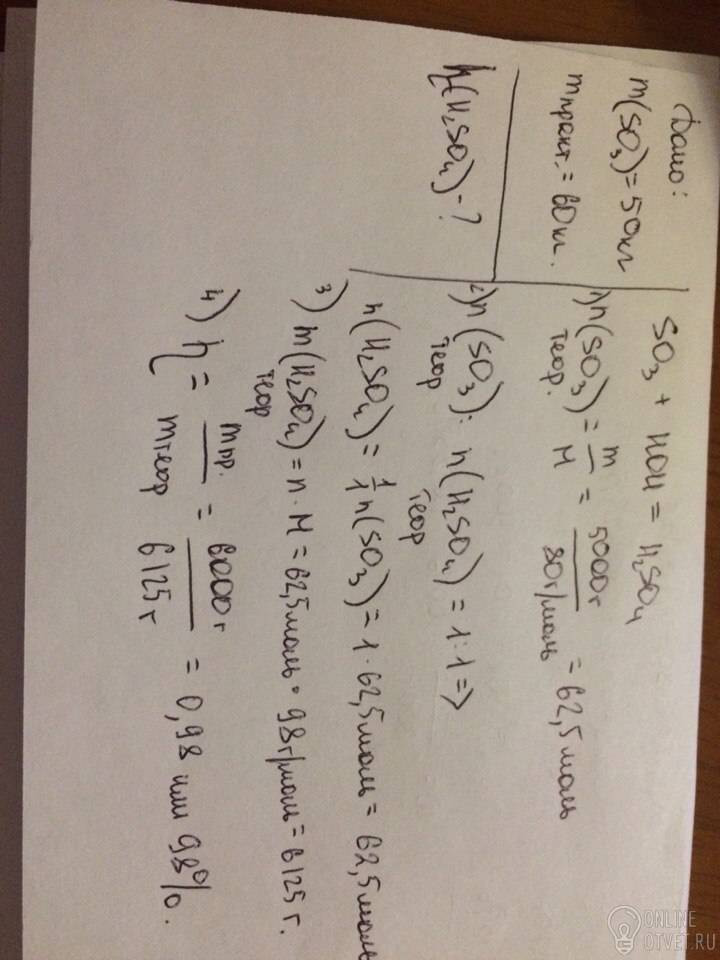 Дано:
m(SO₃)=50кг
mпракт.=60кг.
η(H₂SO₄)-?
SO₃ + HOH = H₂SO₄
1) n(SO₃)теор. = m/M = 5000г/80г/моль = 62,5моль
2) n(SO₃)теор : n(H₂SO₄)теор = 1:1 =>
n(H₂SO₄) = 1/1 n(SO₃) = 1·62,5моль = 62,5моль
3) m(H₂SO₄)теор = n·M = 62,5моль·98г/моль = 6125г.
4) η = mпр./mтеор = 6000г/6125г = 0,98 или 98%.
ONLINE
OTVET.RU